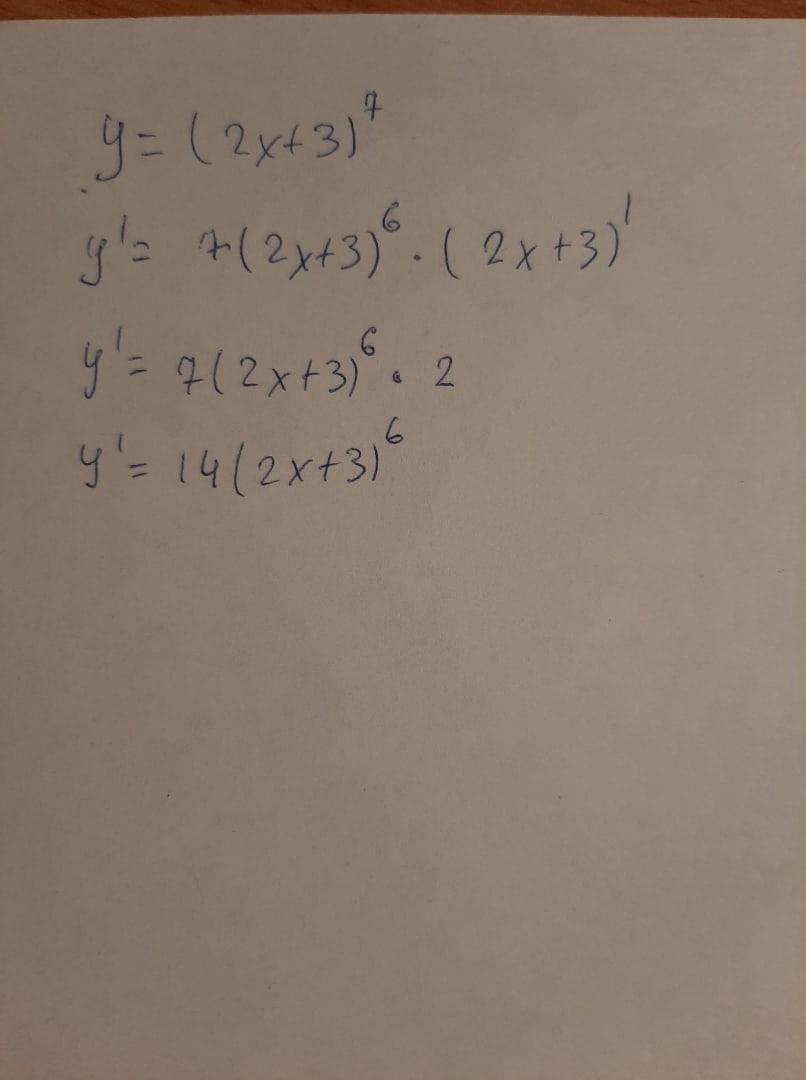 y = (2x+3)⁷
y' = 7(2x+3)⁶ · (2x+3)'
y' = 7(2x+3)⁶ · 2
y' = 14(2x+3)⁶